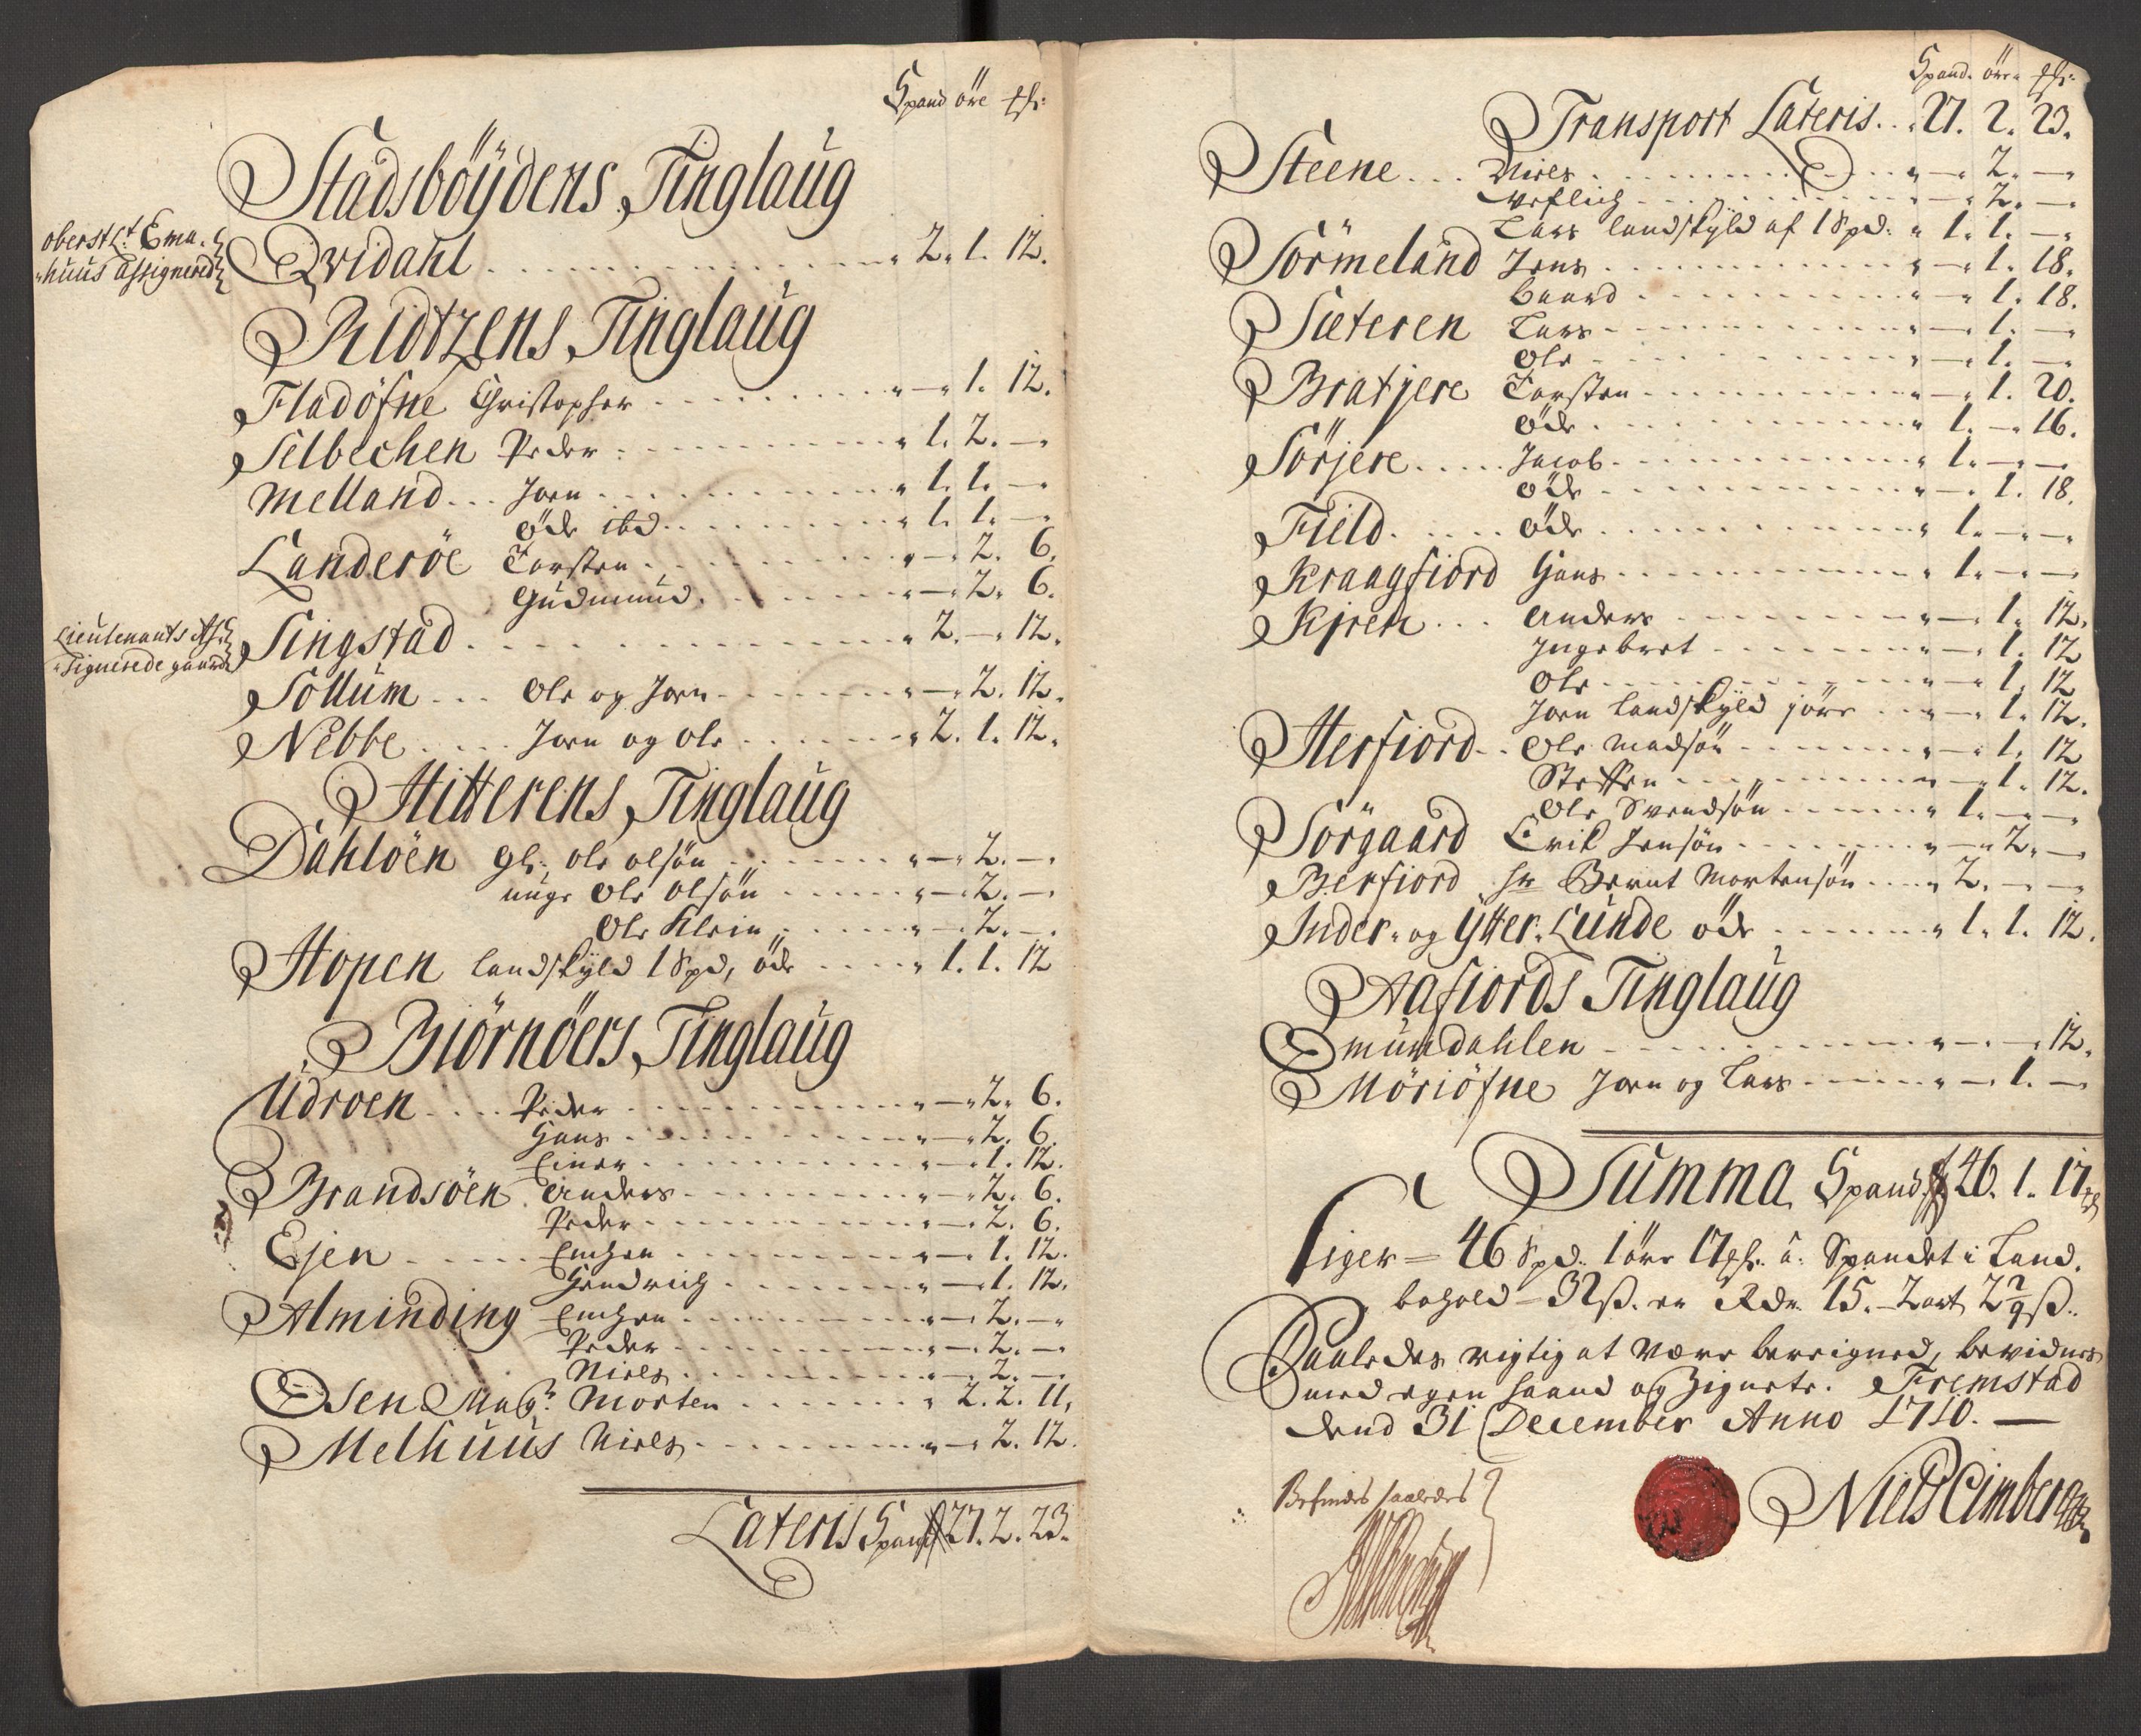 Spand öre
Stadsböydens Tinglaug
oberst Lt. Ema.
huus assignered
Qvidahl . . . 2. 1. 12.
Ridtzens Tinglaug
Fladöfne Christopher . . . - 1. 12.
Selbechen Peder . . . 1. 2. -
Melland . . . Joen . . . 1. 1. -
öde ibd . . . 1. 1. -
Landeröe Torsten . . . - 2. 6.
Gudmund . . . - 2. 6.
Lieutenants As-
signerede gaard
Singstad . . . 2. - 12.
Sollum . . . Ole og Joen . . . - 2. 12.
Nebbe . . . Joen og Ole . . . 2. 1. 12.
Hitterens Tinglaug
Dahlöen gl. Ole olsön . . . - 2. -
unge Ole olsön . . . - 2. -
Ole Klein . . . - 2. -
Hopen landskyld 1 Spd, öde . . . 1. 1. 12
Biörnöers Tinglaug
Udroen . . . Peder . . . - 2. 6.
Hans . . . - 2. 6.
Einer . . . - 1. 12.
Brandsöen Anders . . . - 2. 6.
Peder . . . - 2. 6.
Ejen . . . . . . - 1. 12.
Hendrich . . . - 1. 12.
Alminding . . . - 2. -
Peder . . . - 2. -
Niels . . . - 2. -
Osen Magr. Morten . . . 2. 2. 11.
Melhuus Niels . . . - 2. 12.
Lateris Spand 27. 2. 23.
Spand. öre
Transport Lateris . . 27. 2. 23.
Steene . . . Niels . . . - 2. -
. . . - 2. -
Lars landskyld af 1 Spd. 1. 1. -
Sörmeland Jens . . . - 1. 18.
Baard . . . - 1. 18.
Sæteren Lars . . . - 1. -
Ole . . . - 1. -
Bratjere Torsten . . . - 1. 20.
öde . . . 1. - 16.
Sörjere . . . Jacob . . . 1. - -
öde . . . - 1. 18.
Field . . . öde . . . 1. - -
Kraagfiord Hans . . . 1. - -
Kiren . . . Anders . . . - 1. 12.
Ingebret . . . - 1. 12
Ole . . . - 1. 12
Joen landskyld . . . - 1. 12.
Herfiord . . Ole Madsön . . . - 1. 12
Steffen . . . - 1. 12.
Ole Svendsön . . . 1. - -
Sörgaard Erik Jensön . . . - 2. -
Berfiord hr Bernt Mortensön . . . 2. - -
Inder- og Ytter-Lunde öde . . . 1. 1. 12.
Aafiords Tinglaug
mundahlen . . . - - 12.
Möriöfne Joen og Lars . . . - 1. -
Summa Spand 46. 1. 17
Siger = 46 Spd. 1 öre 17 á Spandet i Land-
behold - 32 ß. er Rdr. 15. - 2 ort 2 2/9 ß.
Saaledes rigtig at være beregned, bevidnes
med egen haand og Zignete. Fremstad
dend 31 December Anno 1710. -
Befindes saaledes
Niels Cimberg